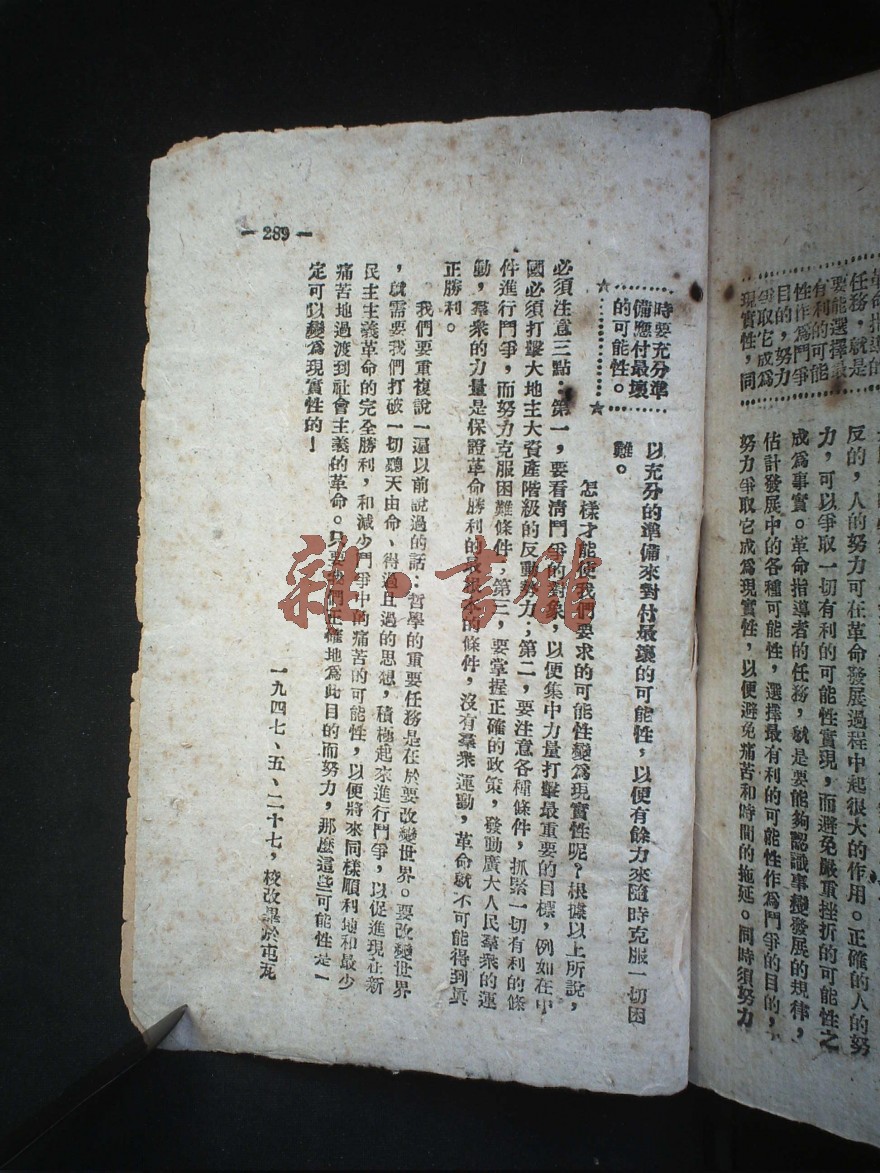 革命指導的
任務，就是
要能選擇最
有利的可能
性作爲鬥爭
目的，努力
爭取它成爲
現實性，同
反的，人的努力可在革命發展過程中起很大的作用。正確的人的努
力，可以爭取一切有利的可能性實現，而避免嚴重挫折的可能性之
成爲事實。革命指導者的任務，就是要能夠認識事變發展的規律，
估計發展中的各種可能性，選擇最有利的可能性作爲鬥爭的目的，
努力爭取它成爲現實性，以便避免痛苦和時間的拖延。同時須努力
時要充分準
備應付最壞
的可能性。
以充分的準備來對付最壞的可能性，以便有餘力來隨時克服一切困
難。
怎樣才能使我們要求的可能性變爲現實性呢？根據以上所說，
必須注意三點：第一，要看清鬥爭的對象，以便集中力量打擊最重要的目標，例如在中
國必須打擊大地主大資產階級的反動勢力；第二，要注意各種條件，抓緊一切有利的條
件進行鬥爭，而努力克服困難條件，第三，要掌握正確的政策，發動廣大人民羣衆的運
動，羣衆的力量是保證革命勝利的最根本的條件，沒有羣衆運動，革命就不可能得到眞
正勝利。
我們要重複說一遍以前說過的話：哲學的重要任務是在於要改變世界。要改變世界
，就需要我們打破一切聽天由命、得過且過的思想，積極起來進行鬥爭，以促進現在新
民主主義革命的完全勝利，和減少鬥爭中的痛苦的可能性，以便將來同樣順利地和最少
痛苦地過渡到社會主義的革命。只要我們正確地爲此目的而努力，那麼這些可能性是一
定可以變爲現實性的！
一九四七、五、二十七，校改畢於屯瓦
— 289 —